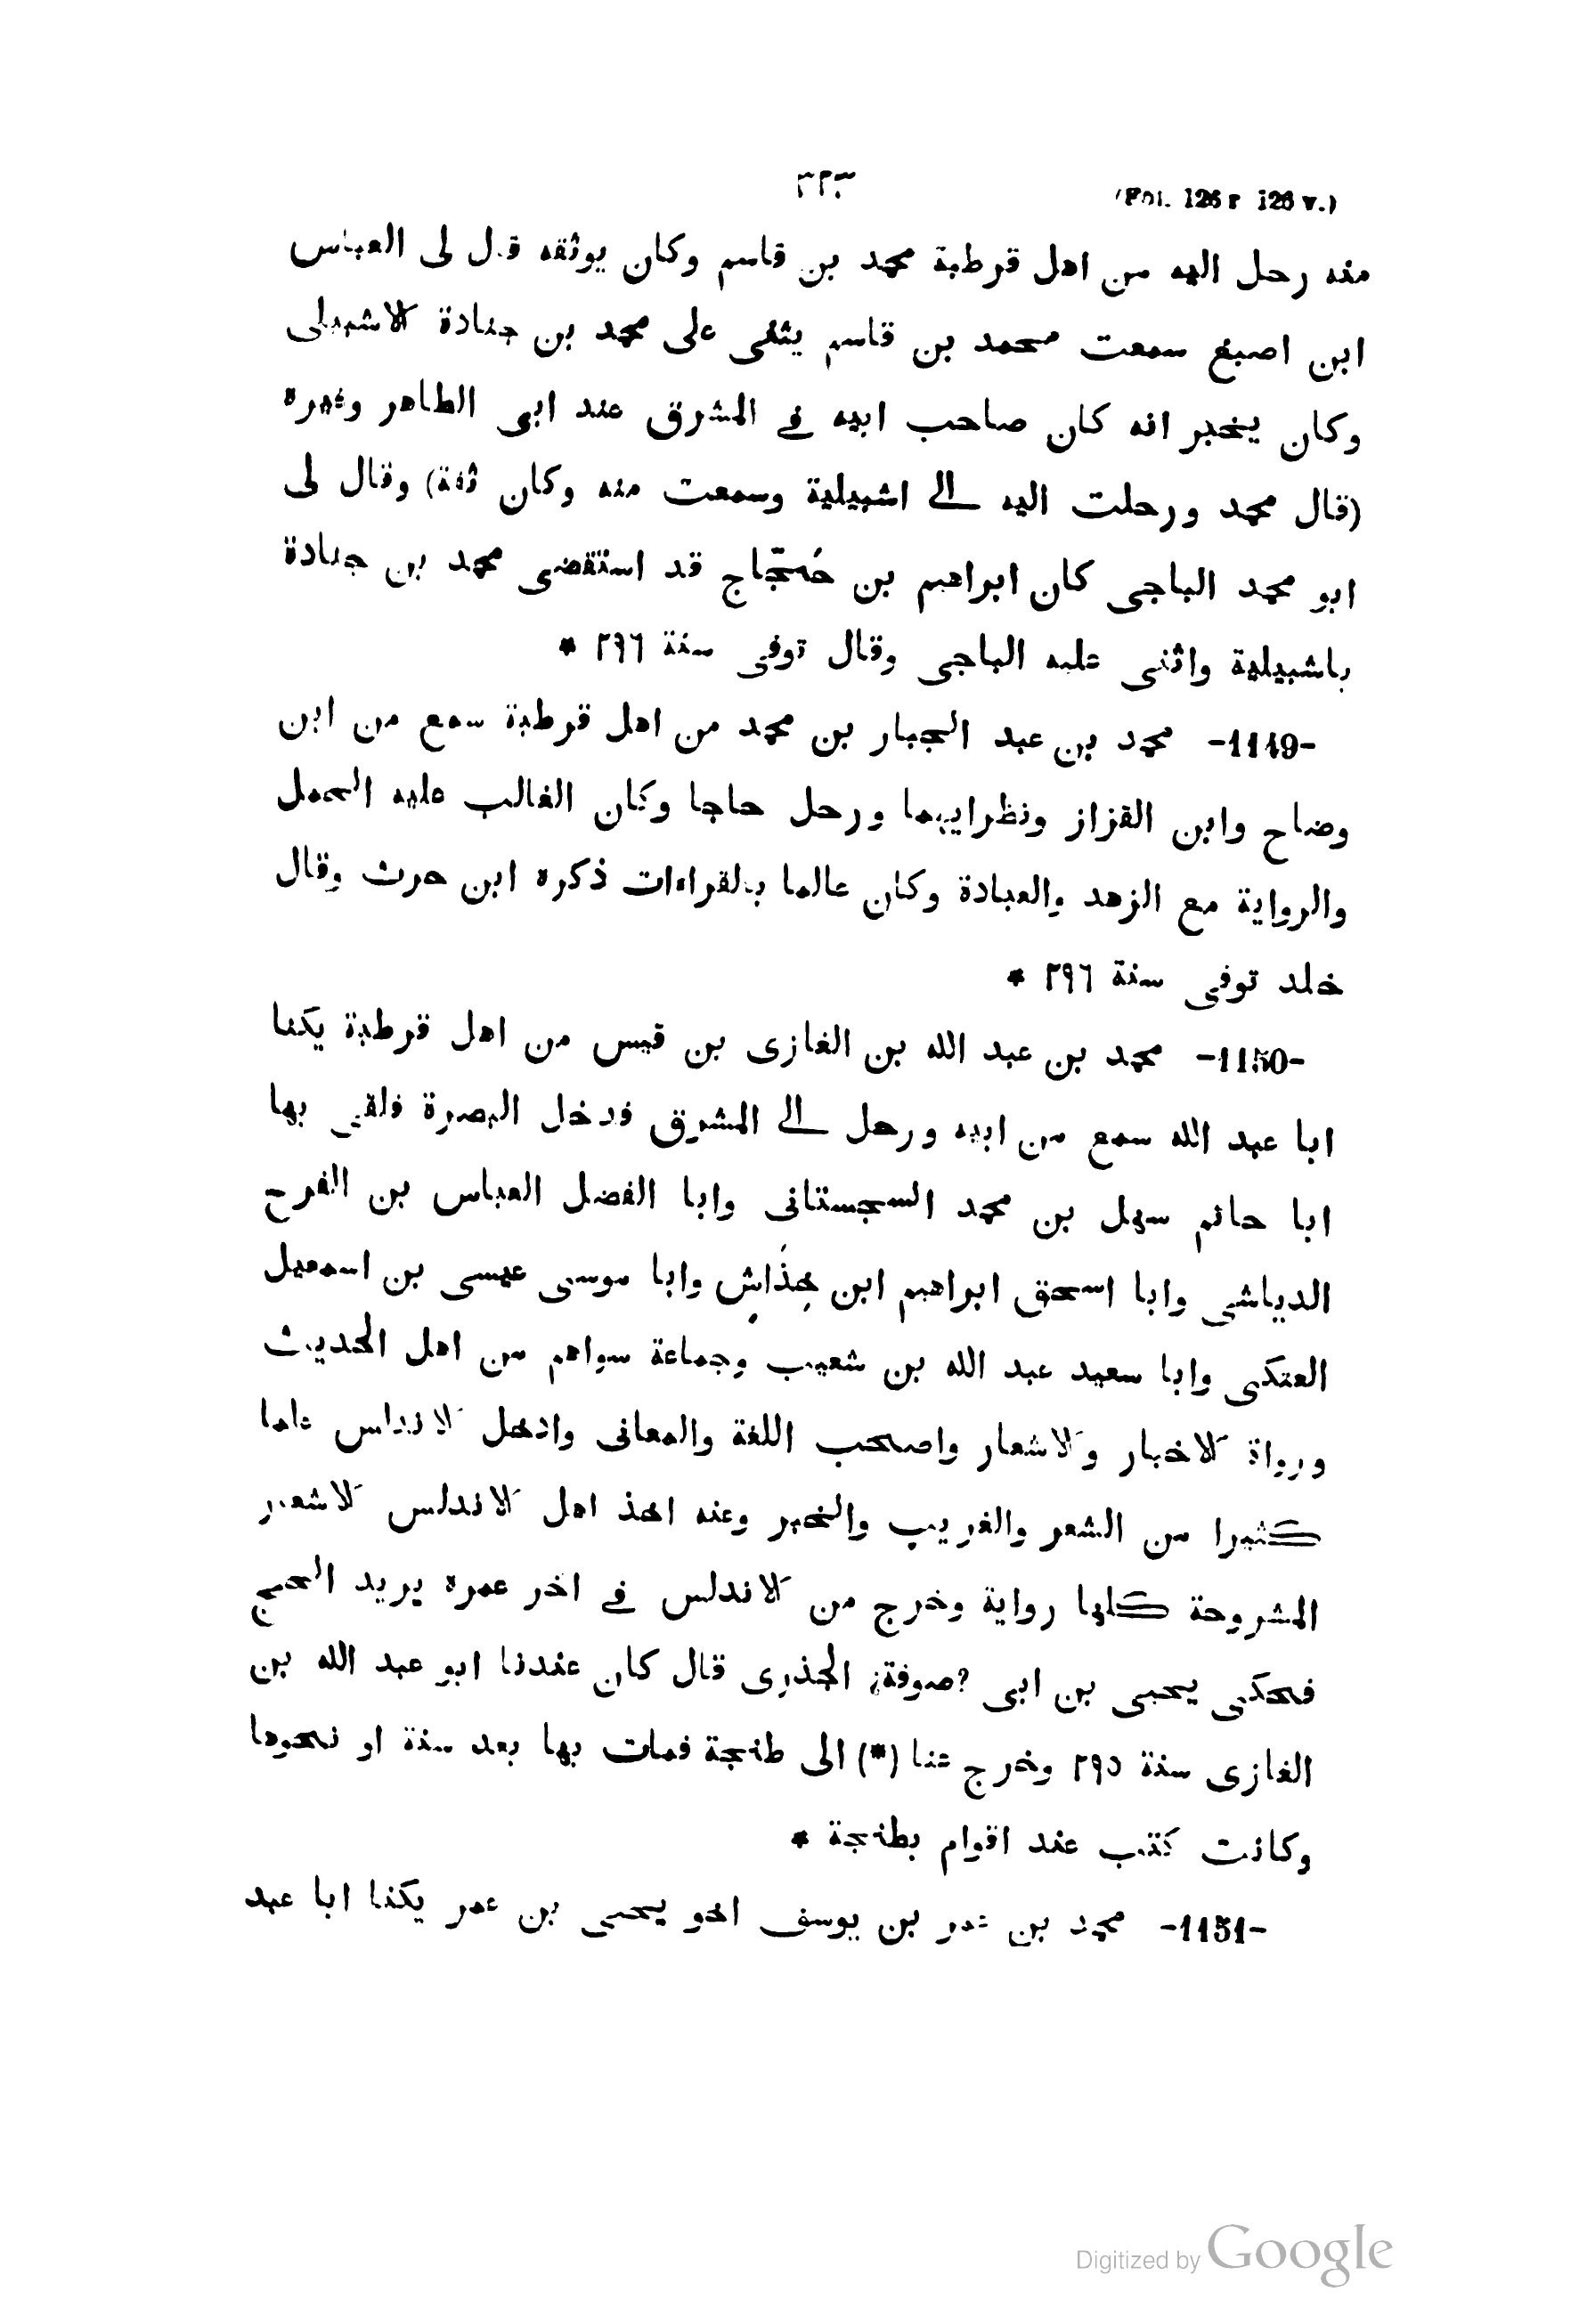 ٣٢٣ (Fol. 126 r 126 v.)
منه رحل اليه من اهل قرطبة محمد بن قاسم وكان يوثقه قال لى العباس
ابن اصبغ سمعت محمد بن قاسم يثنى على محمد بن جنادة الاشبيلى
وكان يخبر انه كان صاحب ابيه فى المشرق عند ابى الطاهر وغيره
(قال محمد ورحلت اليه الى اشبيلية وسمعت منه وكان ثقة) وقال لى
ابو محمد الباجى كان ابراهيم بن حَجّاج قد استقضى محمد بن جنادة
باشبيلية واثنى عليه الباجى وقال توفى سنة ٢٩٦ *
-1149- محمد بن عبد الجبار بن محمد من اهل قرطبة سمع من ابن
وضاح وابن القزاز ونظرايهما ورحل حاجا وكان الغالب عليه الحمل
والرواية مع الزهد والعبادة وكان عالما بالقراءات ذكره ابن حرث وقال
خلد توفى سنة ٢٩٦ *
-1150- محمد بن عبد الله بن الغازى بن قيس من اهل قرطبة يكنا
ابا عبد الله سمع من ابيه ورحل الى المشرق فدخل البصرة فلقى بها
ابا حاتم سهل بن محمد السجستانى وابا الفضل العباس بن الفرج
الدياشى وابا اسحق ابراهيم ابن خِذَاشٍ وابا موسى عيسى بن اسمعيل
العتكى وابا سعيد عبد الله بن شعيب وجماعة سواهم من اهل الحديث
ورواة الاخبار والاشعار واصحب اللغة والمعانى وادخل الاندلس علما
كثيرا من الشعر والغريب والخبر وعنه اخذ اهل الاندلس الاشعار
المشروحة كلها رواية وخرج من الاندلس فى اخر عمره يريد الحج
فحكى يحيى بن ابى ?صوفة¿ الجذرى قال كان عندنا ابو عبد الله بن
الغازى سنة ٢٩٥ وخرج عنا (*) الى طنجة فمات بها بعد سنة او نحوها
وكانت كتب عند اقوام بطنجة *
-1151- محمد بن عمر بن يوسف اخو يحيى بن عمر يكنا ابا عبد
Digitized by Google